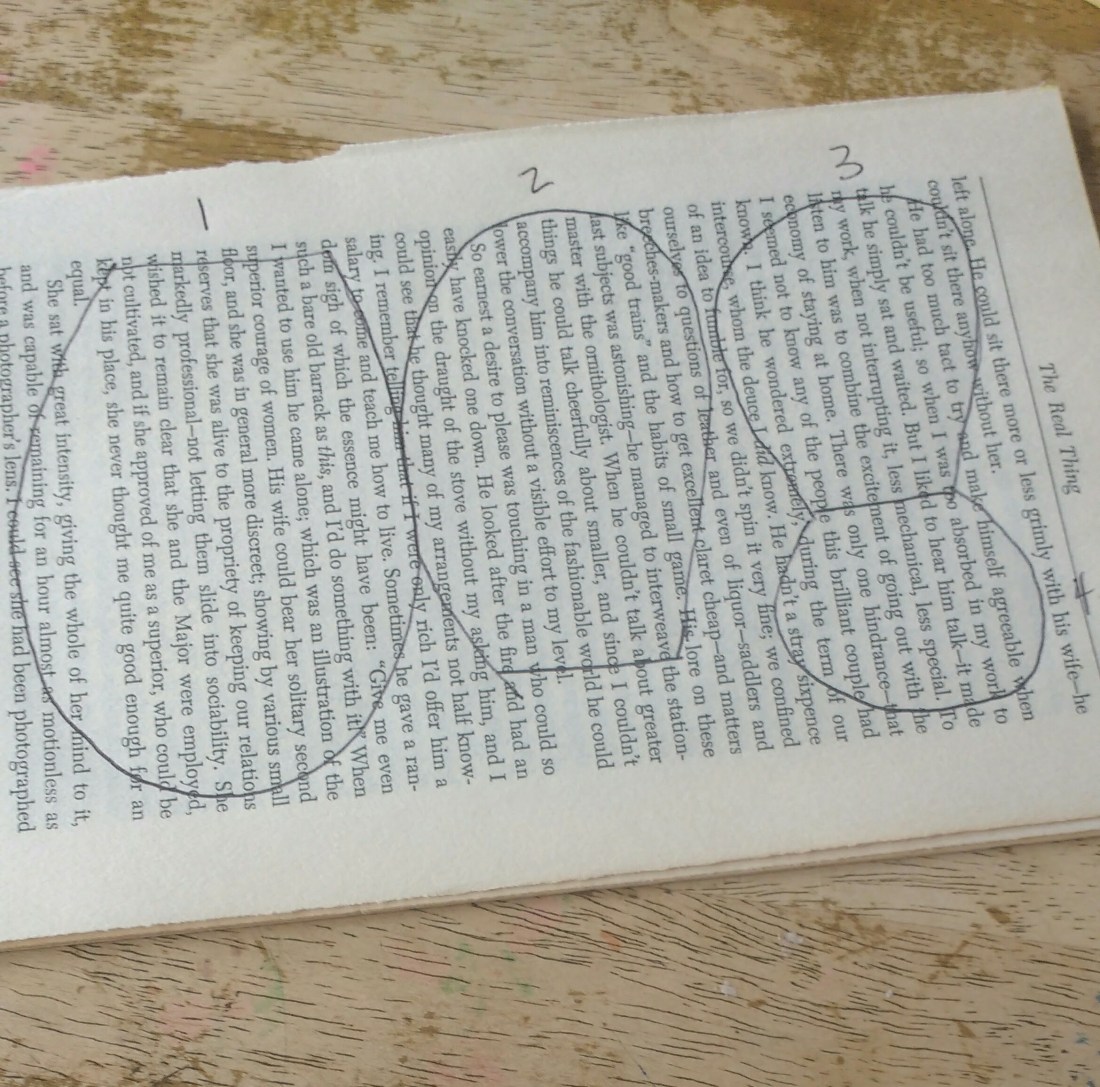 The Real Thing
left alone. He could sit there more or less grimly with his wife—he
couldn't sit there anyhow without her.
He had too much tact to try and make himself agreeable when
he couldn't be useful; so when I was too absorbed in my work to
talk he simply sat and waited. But I liked to hear him talk—it made
my work, when not interrupting it, less mechanical, less special. To
listen to him was to combine the excitement of going out with the
economy of staying at home. There was only one hindrance—that
I seemed not to know any of the people this brilliant couple had
known. I think he wondered extremely, during the term of our
intercourse, whom the deuce I did know. He hadn't a stray sixpence
of an idea to fumble for, so we didn't spin it very fine; we confined
ourselves to questions of leather and even of liquor—saddlers and
breeches-makers and how to get excellent claret cheap—and matters
like "good trains" and the habits of small game. His lore on these
last subjects was astonishing—he managed to interweave the station-
master with the ornithologist. When he couldn't talk about greater
things he could talk cheerfully about smaller, and since I couldn't
accompany him into reminiscences of the fashionable world he could
lower the conversation without a visible effort to my level.
So earnest a desire to please was touching in a man who could so
easily have knocked one down. He looked after the fire and had an
opinion on the draught of the stove without my asking him, and I
could see that he thought many of my arrangements not half know-
ing. I remember telling him that if I were only rich I'd offer him a
salary to come and teach me how to live. Sometimes he gave a ran-
dom sigh of which the essence might have been: "Give me even
such a bare old barrack as this, and I'd do something with it!" When
I wanted to use him he came alone; which was an illustration of the
superior courage of women. His wife could bear her solitary second
floor, and she was in general more discreet; showing by various small
reserves that she was alive to the propriety of keeping our relations
markedly professional—not letting them slide into sociability. She
wished it to remain clear that she and the Major were employed,
not cultivated, and if she approved of me as a superior, who could be
kept in his place, she never thought me quite good enough for an
equal.
She sat with great intensity, giving the whole of her mind to it,
and was capable of remaining for an hour almost as motionless as
before a photographer's lens. I could see she had been photographed
3
2
1